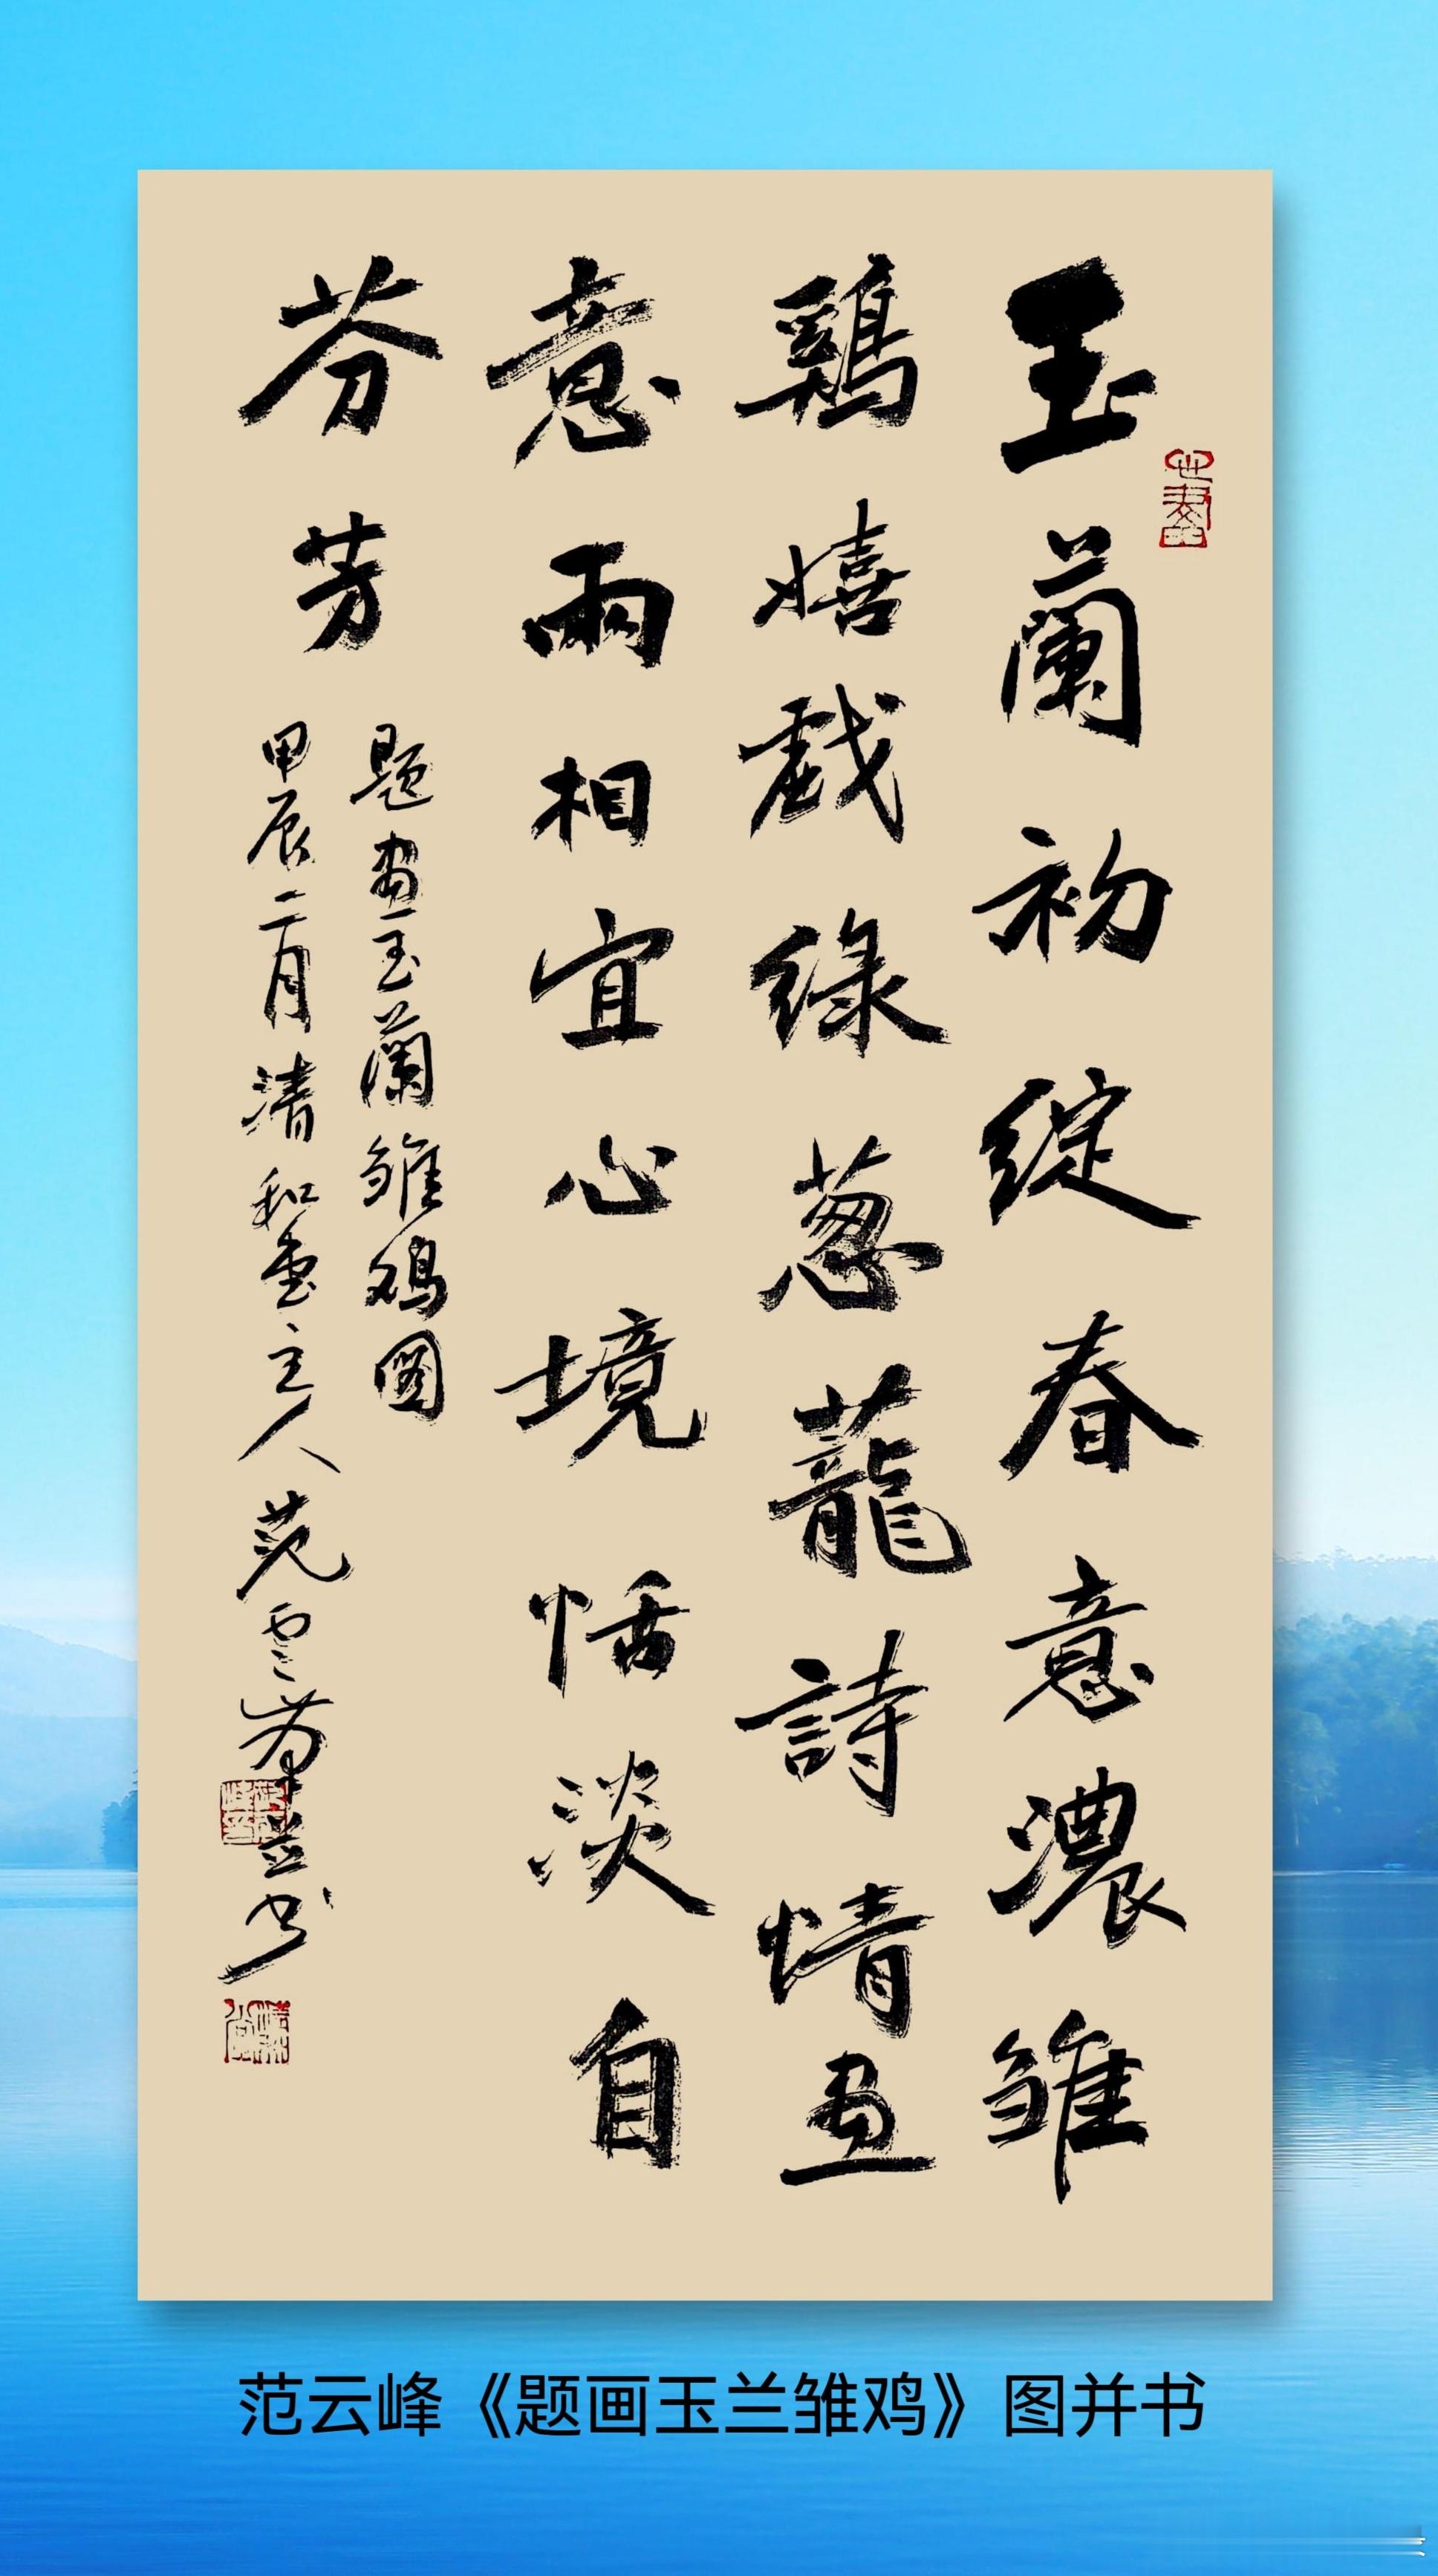 玉蘭初綻春意濃雛
鷄嬉戲綠蔥蘢詩情畫
意兩相宜心境恬淡自
芬芳
题畫玉蘭雛鸡圖
甲辰二月清和堂主人范雲峰并书
范云峰《题画玉兰雏鸡》图并书